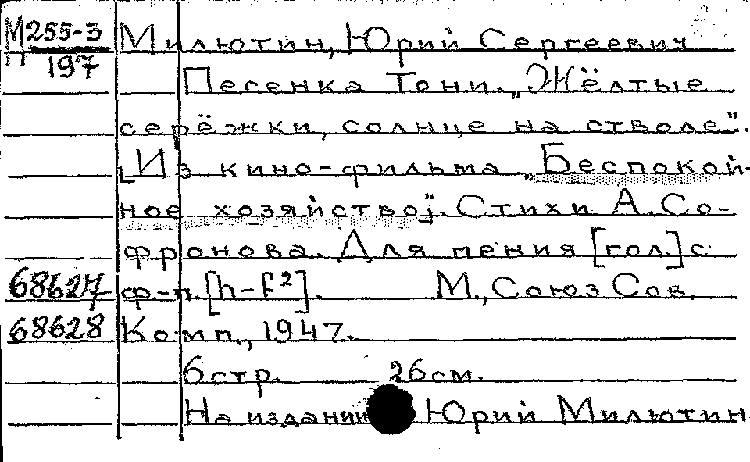 М 255-3
П 197
Милютин, Юрий Сергеевич
Песенка Тони. „Жёлтые
серёжки, солнце на стволе".
[Из кино-фильма „Беспокой-
ное хозяйство]". Стихи А. Со-
фронова. Для пения [гол.] с
68627 ф-п. [h-f²]. М., Союз Сов.
68628 Комп., 1947.
6 стр. 26 см.
На издании Юрий Милютин